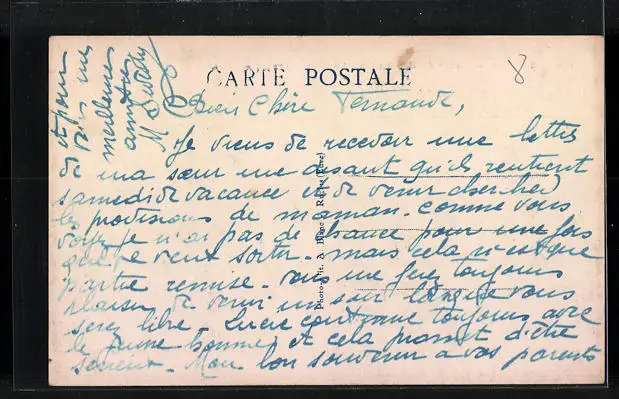 8
CARTE POSTALE
Bien Chère Fernande,
Je viens de recevoir une lettre
de ma sœur me disant qu'ils rentrent
samedi de vacance et de venir chercher
le provisions de maman. comme vous
voyez je n'ai pas de chance pour une fois
que je veut sortir. mais cela n'est que
partie remise. vous me ferez toujours
plaisir de venir un soir lorsque vous
serez libre. Lucie continue toujours avec
le jeune homme et cela promet d'être
serieux. Mon bon souvenir a vos parents
et pour
vous mes
meilleures
amitiés
M